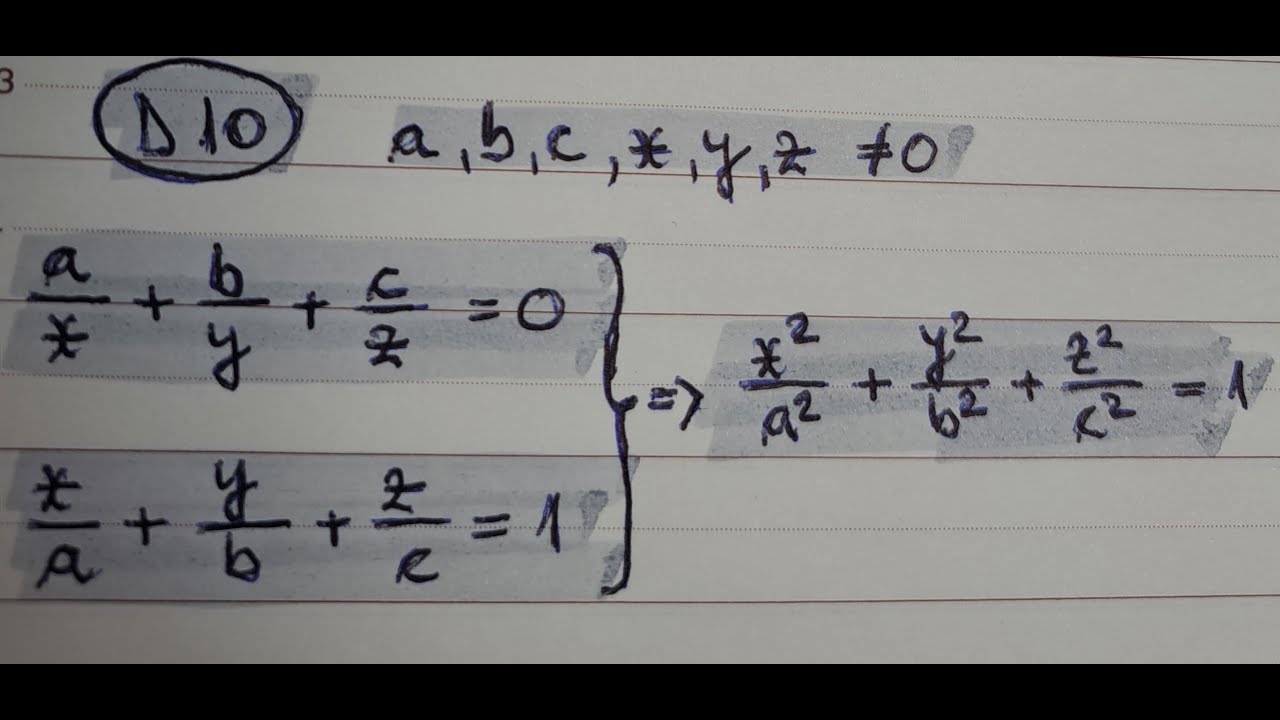 3
D10 a, b, c, x, y, z ≠0
a/x + b/y + c/z = 0
x/a + y/b + z/c = 1
} => x²/a² + y²/b² + z²/c² = 1